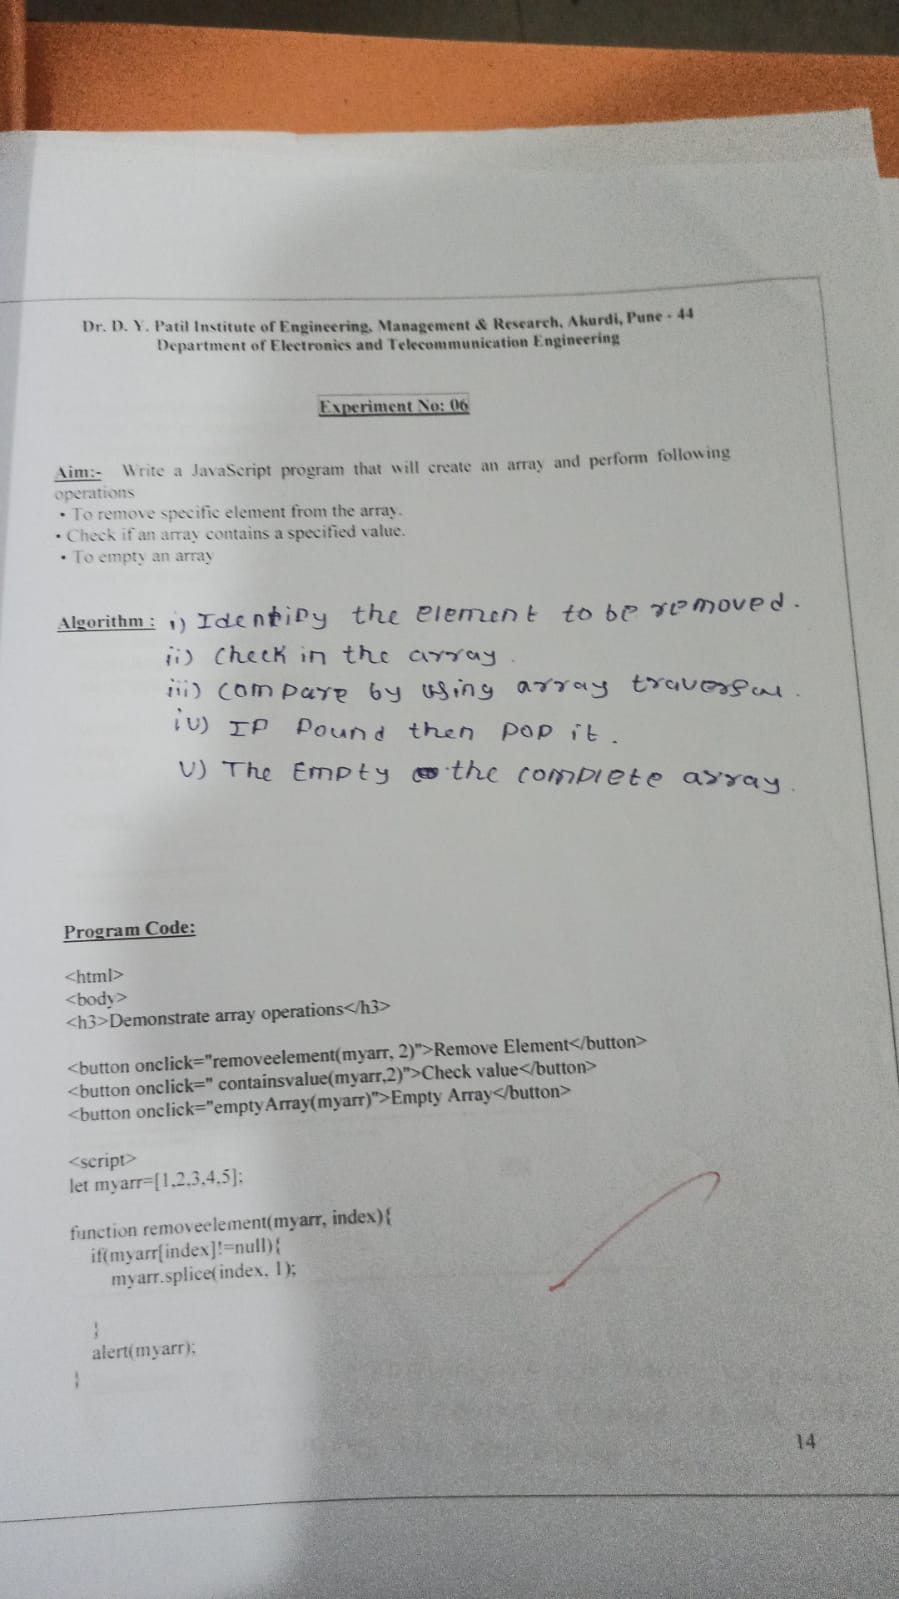 Dr. D. Y. Patil Institute of Engineering, Management & Research, Akurdi, Pune - 44
Department of Electronics and Telecommunication Engineering
Experiment No: 06
Aim:- Write a JavaScript program that will create an array and perform following
operations
• To remove specific element from the array.
• Check if an array contains a specified value.
• To empty an array
Algorithm : i) Identify the element to be removed.
ii) Check in the array.
iii) Compare by using array traversal.
iv) If found then pop it.
v) The Empty the complete array.
Program Code:
<html>
<body>
<h3>Demonstrate array operations</h3>
<button onclick="removeelement(myarr, 2)">Remove Element</button>
<button onclick=" containsvalue(myarr,2)">Check value</button>
<button onclick="emptyArray(myarr)">Empty Array</button>
<script>
let myarr=[1,2,3,4,5];
function removeelement(myarr, index){
if(myarr[index]!=null){
myarr.splice(index, 1);
}
alert(myarr);
}
14